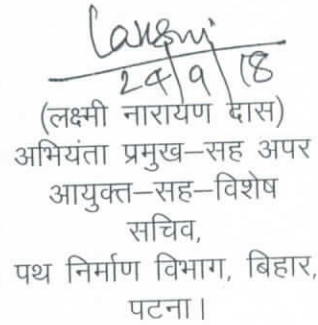 Lakshmi
24/9/18
(लक्ष्मी नारायण दास)
अभियंता प्रमुख–सह अपर
आयुक्त–सह–विशेष
सचिव,
पथ निर्माण विभाग, बिहार,
पटना।